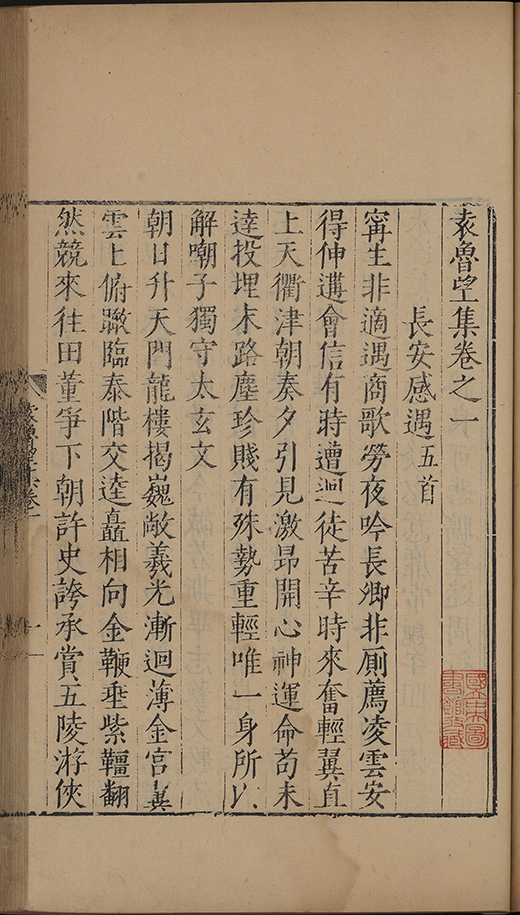 袁魯望集卷之一
長安感遇五首
甯生非適遇商歌勞夜吟長卿非厠薦凌雲安
得伸遘會信有時遭迴徒苦辛時來奮輕翼直
上天衢津朝奏夕引見激昂開心神運命苟未
逹投埋末路塵珍賤有殊勢重輕唯一身所以
解嘲子獨守太玄文
朝日升天門龍樓揭巍敞羲光漸迴薄金宮冀
雲上俯瞰臨泰階交逵矗相向金鞭垂紫韁翻
然競來往田董爭下朝許史誇承賞五陵游俠
袁魯望集卷一
一
國立中央圖書館收藏